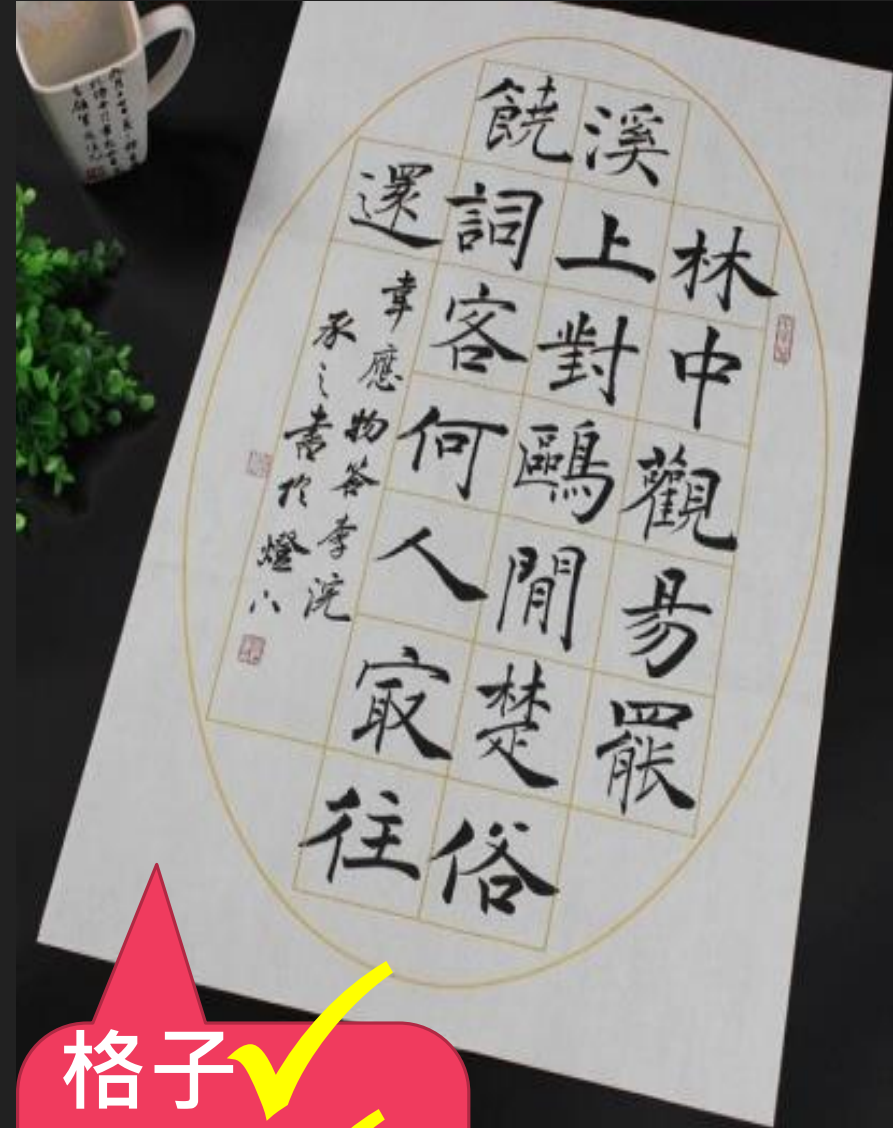 林中觀易罷
溪上對鷗閒楚俗
饒詞客何人㝡往
還
韋應物答李浣
承之書於燈下
格子